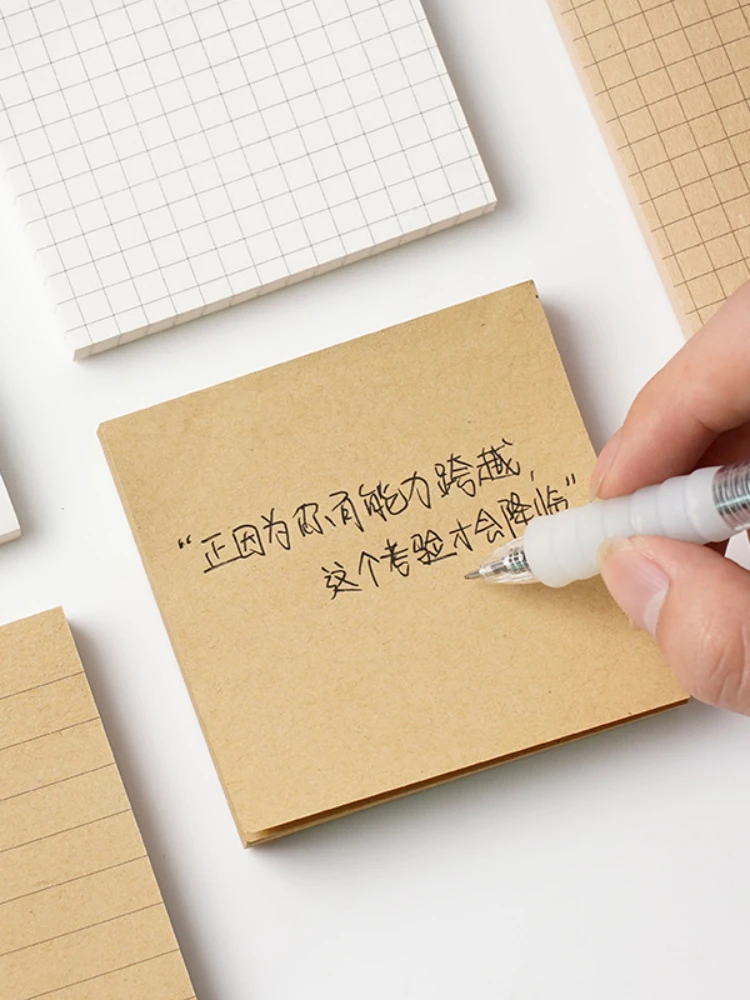 “正因为你有能力跨越,
这个考验才会降临”